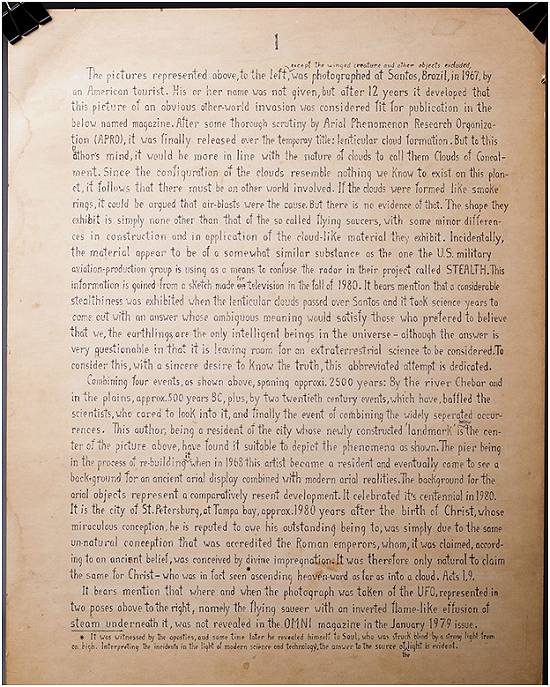 1
except the winged creature and other objects excluded,
The pictures represented above, to the left, was photographed at Santos, Brazil, in 1967, by
an American tourist. His or her name was not given, but after 12 years it developed that
this picture of an obvious other-world invasion was considered fit for publication in the
below named magazine. After some thorough scrutiny by Arial Phenomenon Research Organiza-
tion (APRO), it was finally released over the temporay title: lenticular cloud formation. But to this
author's mind, it would be more in line with the nature of clouds to call them Clouds of Conceal-
ment. Since the configuration of the clouds resemble nothing we know to exist on this plan-
et, it follows that there must be an other world involved. If the clouds were formed like smoke
rings, it could be argued that air-blasts were the cause. But there is no evidence of that. The shape they
exhibit is simply none other than that of the so called flying saucers, with some minor differen-
ces in construction and in application of the cloud-like material they exhibit. Incidentally,
the material appear to be of a somewhat similar substance as the one the U.S. military
aviation-production group is using as a means to confuse the radar in their project called STEALTH. This
information is gained from a sketch made for television in the fall of 1980. It bears mention that a considerable
stealthiness was exhibited when the lenticular clouds passed over Santos and it took science years to
come out with an answer whose ambiguous meaning would satisfy those who prefered to believe
that we, the earthlings, are the only intelligent beings in the universe - although the answer is
very questionable in that it is leaving room for an extraterrestrial science to be considered. To
consider this, with a sincere desire to know the truth, this abbreviated attempt is dedicated.
Combining four events, as shown above, spaning approxi. 2500 years: By the river Chebar and
in the plains, approx. 500 years BC, plus, by two twentieth century events, which have, baffled the
scientists, who cared to look into it, and finally the event of combining the widely seperated occur-
rences. This author, being a resident of the city whose newly constructed 'landmark' is the cen-
ter of the picture above, have found it suitable to depict the phenomena as shown. The pier being
in the process of re-building it when in 1968 this artist became a resident and eventually came to see a
back-ground for an ancient arial display combined with modern arial realities. The background for the
arial objects represent a comparatively resent development. It celebrated its centennial in 1980.
It is the city of St. Petersburg, at Tampa bay, approx. 1980 years after the birth of Christ, whose
miraculous conception, he is reputed to owe his outstanding being to, was simply due to the same
un-natural conception that was accredited the Roman emperors, whom, it was claimed, accord-
ing to an ancient belief, was conceived by divine impregnation. It was therefore only natural to claim
the same for Christ - who was in fact seen ascending heaven-ward as far as into a cloud. Acts 1,9.
It bears mention that where and when the photograph was taken of the UFO, represented in
two poses above to the right, namely the flying saucer with an inverted flame-like effusion of
steam underneath it, was not revealed in the OMNI magazine in the January 1979 issue.
* It was witnessed by the apostles, and some time later he revealed himself to Saul, who was struck blind by a strong light from
on high. Interpreting the incidents in the light of modern science and technology, the answer to the source of the light is evident.